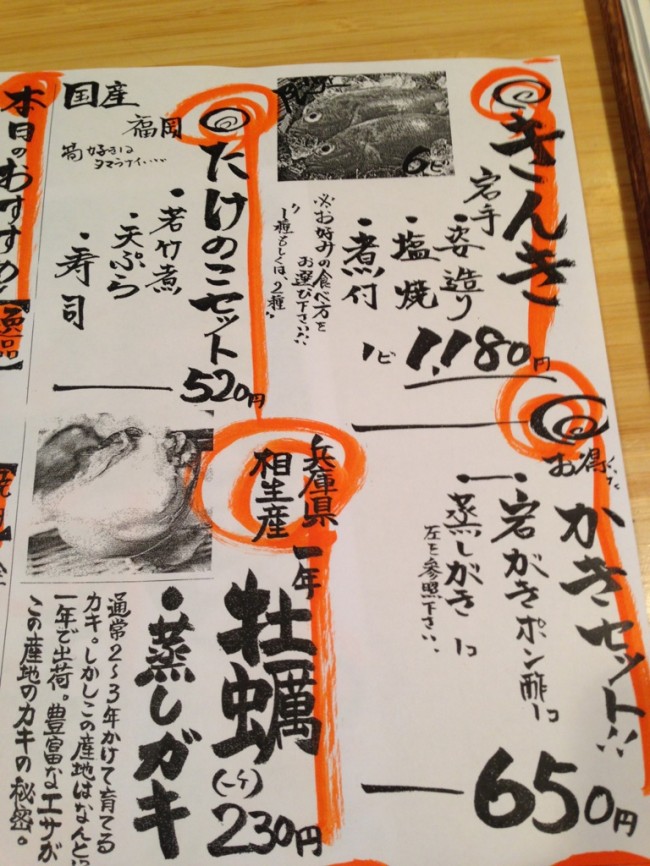 きんき
岩手
・姿造り
・塩焼
・煮付
※お好みの食べ方を
お選び下さい!!
1種もしくは、2種。
6ピ
1ピ 1,180円
お得
かきセット!!
・岩がきポン酢1コ
・蒸しがき 1コ
左を参照下さい。
650円
国産
福岡
筍好きは
タマラナイ…
たけのこセット
・若竹煮
・天ぷら
・寿司
520円
兵庫県
相生産
一年
牡蠣
(一ケ)
230円
・蒸しガキ
通常2~3年かけて育てる
カキ。しかしこの産地はなんと
一年で出荷。豊富なエサが
この産地のカキの秘密。
本日のおすすめ!